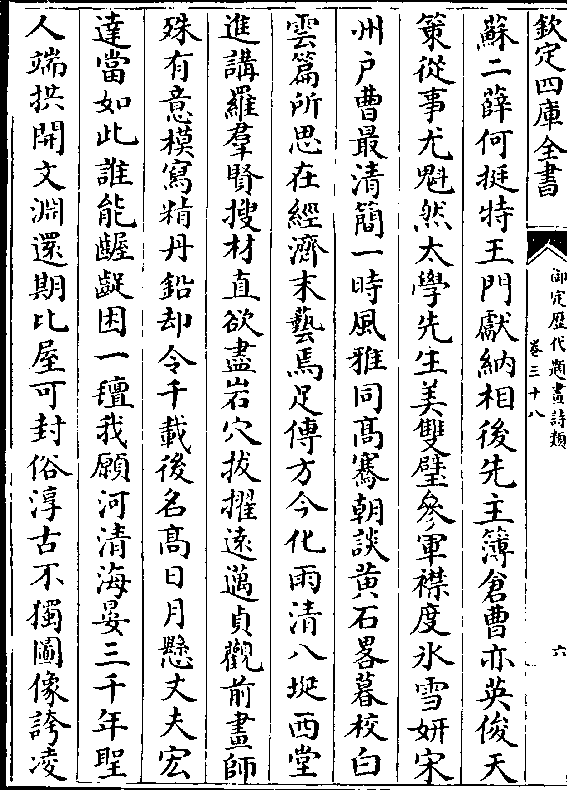 欽定四庫全書
御定歷代題畫詩類
卷三十八
六
蘇二薛何挺特王門獻納相後先主簿倉曹亦英俊天
策從事尤魁然太學先生美雙璧參軍襟度氷雪妍宋
州户曹最清簡一時風雅同髙騫朝談黄石畧暮校白
雲篇所思在經濟末藝焉足傳方今化雨清八埏西堂
進講羅羣賢搜材直欲盡岩穴拔擢遠邁貞觀前畫師
殊有意模寫精丹鉛却令千載後名髙日月懸丈夫宏
達當如此誰能齷齪困一㕓我願河清海晏三千年聖
人端拱開文淵還期比屋可封俗淳古不獨圖像誇凌